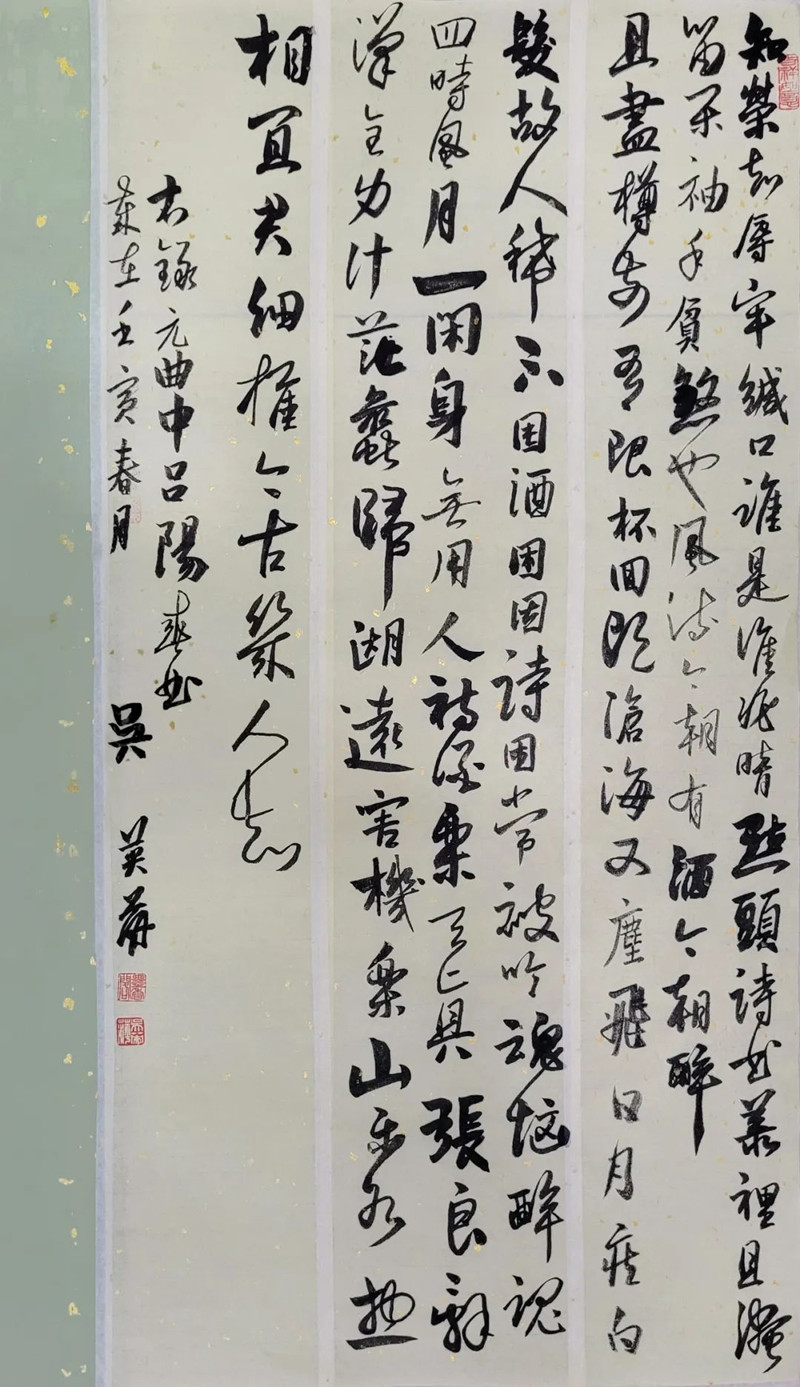 知榮知辱牢緘口誰是誰非暗點頭詩書叢裡且淹
留閑袖手貧煞也風流今朝有酒今朝醉
且盡樽前有限杯回頭滄海又塵飛日月疾白
髮故人稀不因酒困因詩困常被吟魂惱醉魂
四時風月一閑身無用人詩酒樂天真張良辭
漢全身計范蠡歸湖遠害機樂山樂水總
相宜君細推今古幾人知
右錄元曲中呂陽春曲
歲在壬寅春月 吳 英